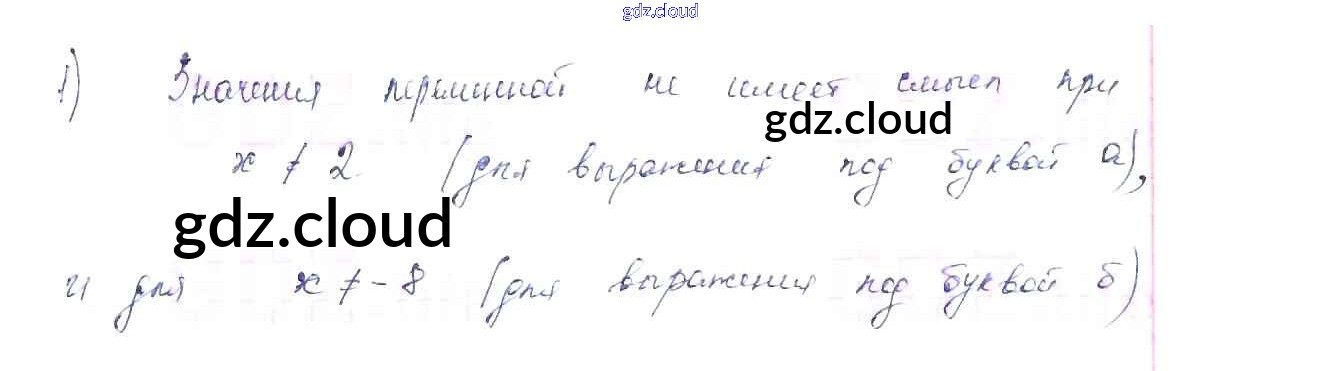 gdz.cloud
1) Значения переменной не имеет смысл при
gdz.cloud
x ≠ 2 (для выражения под буквой а),
gdz.cloud
и для x ≠ -8 (для выражения под буквой б)